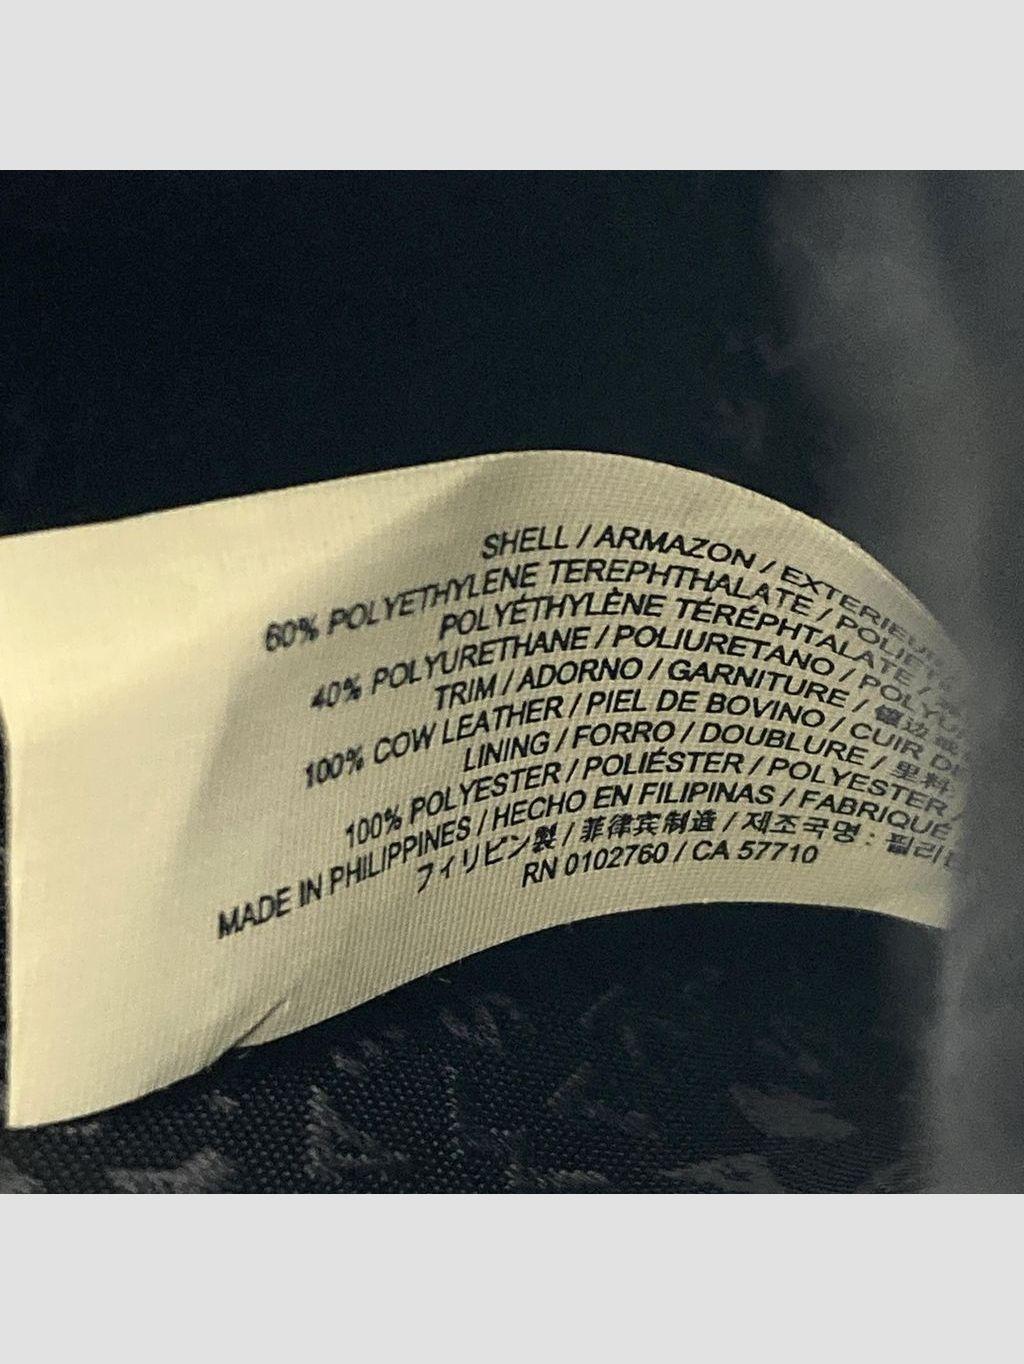 SHELL / ARMAZON / EXTERIEUR
60% POLYETHYLENE TEREPHTHALATE /
POLYÉTHYLÈNE TÉRÉPHTALATE /
40% POLYURETHANE / POLIURETANO /
TRIM / ADORNO / GARNITURE /
100% COW LEATHER / PIEL DE BOVINO / CUIR
LINING / FORRO / DOUBLURE / 里料:
100% POLYESTER / POLIÉSTER / POLYESTER /
MADE IN PHILIPPINES / HECHO EN FILIPINAS / FABRIQUÉ
フィリピン製 / 菲律宾制造 / 제조국명 :
RN 0102760 / CA 57710